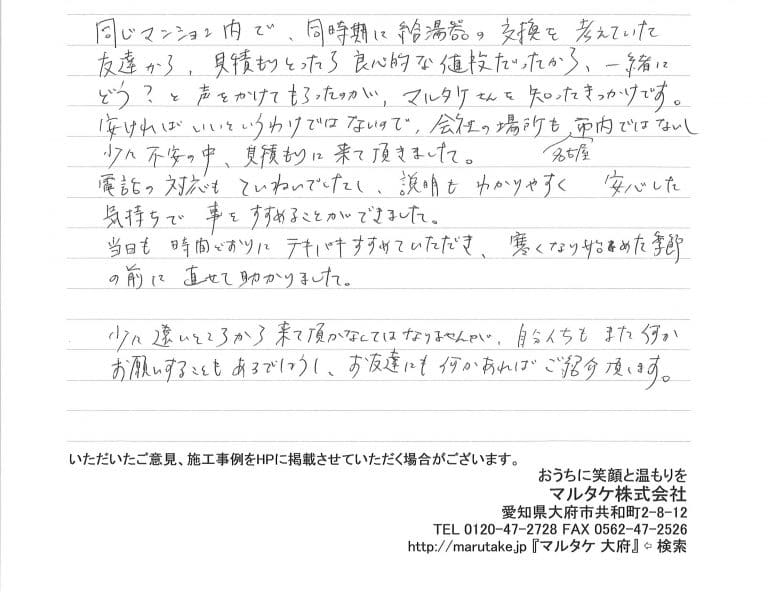 同じマンション内で、同時期に給湯器の交換を考えていた
友達から、見積もりとったら良心的な値段だったから、一緒に
どう？と声をかけてもらったのが、マルタケさんを知ったきっかけです。
安ければいいというわけではないので、会社の場所も名古屋市内ではないし
少し不安の中、見積もりに来て頂きました。
電話の対応もていねいでしたし、説明もわかりやすく 安心した
気持ちで事をすすめることができました。
当日も時間どおりにテキパキすすめていただき、寒くなり始めた季節
の前に直せて助かりました。
少し遠いところから来て頂かなくてはなりませんが、自分たちもまた何か
お願いすることもあるでしょうし、お友達にも何かあればご紹介頂します。
いただいたご意見、施工事例をHPに掲載させていただく場合がございます。
おうちに笑顔と温もりを
マルタケ株式会社
愛知県大府市共和町2-8-12
TEL 0120-47-2728 FAX 0562-47-2526
http://marutake.jp 『マルタケ 大府』⇦ 検索